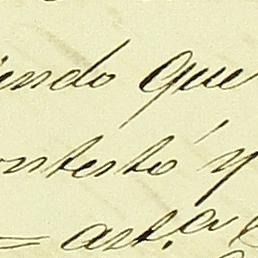 iendo que
ontestó y
= art.a